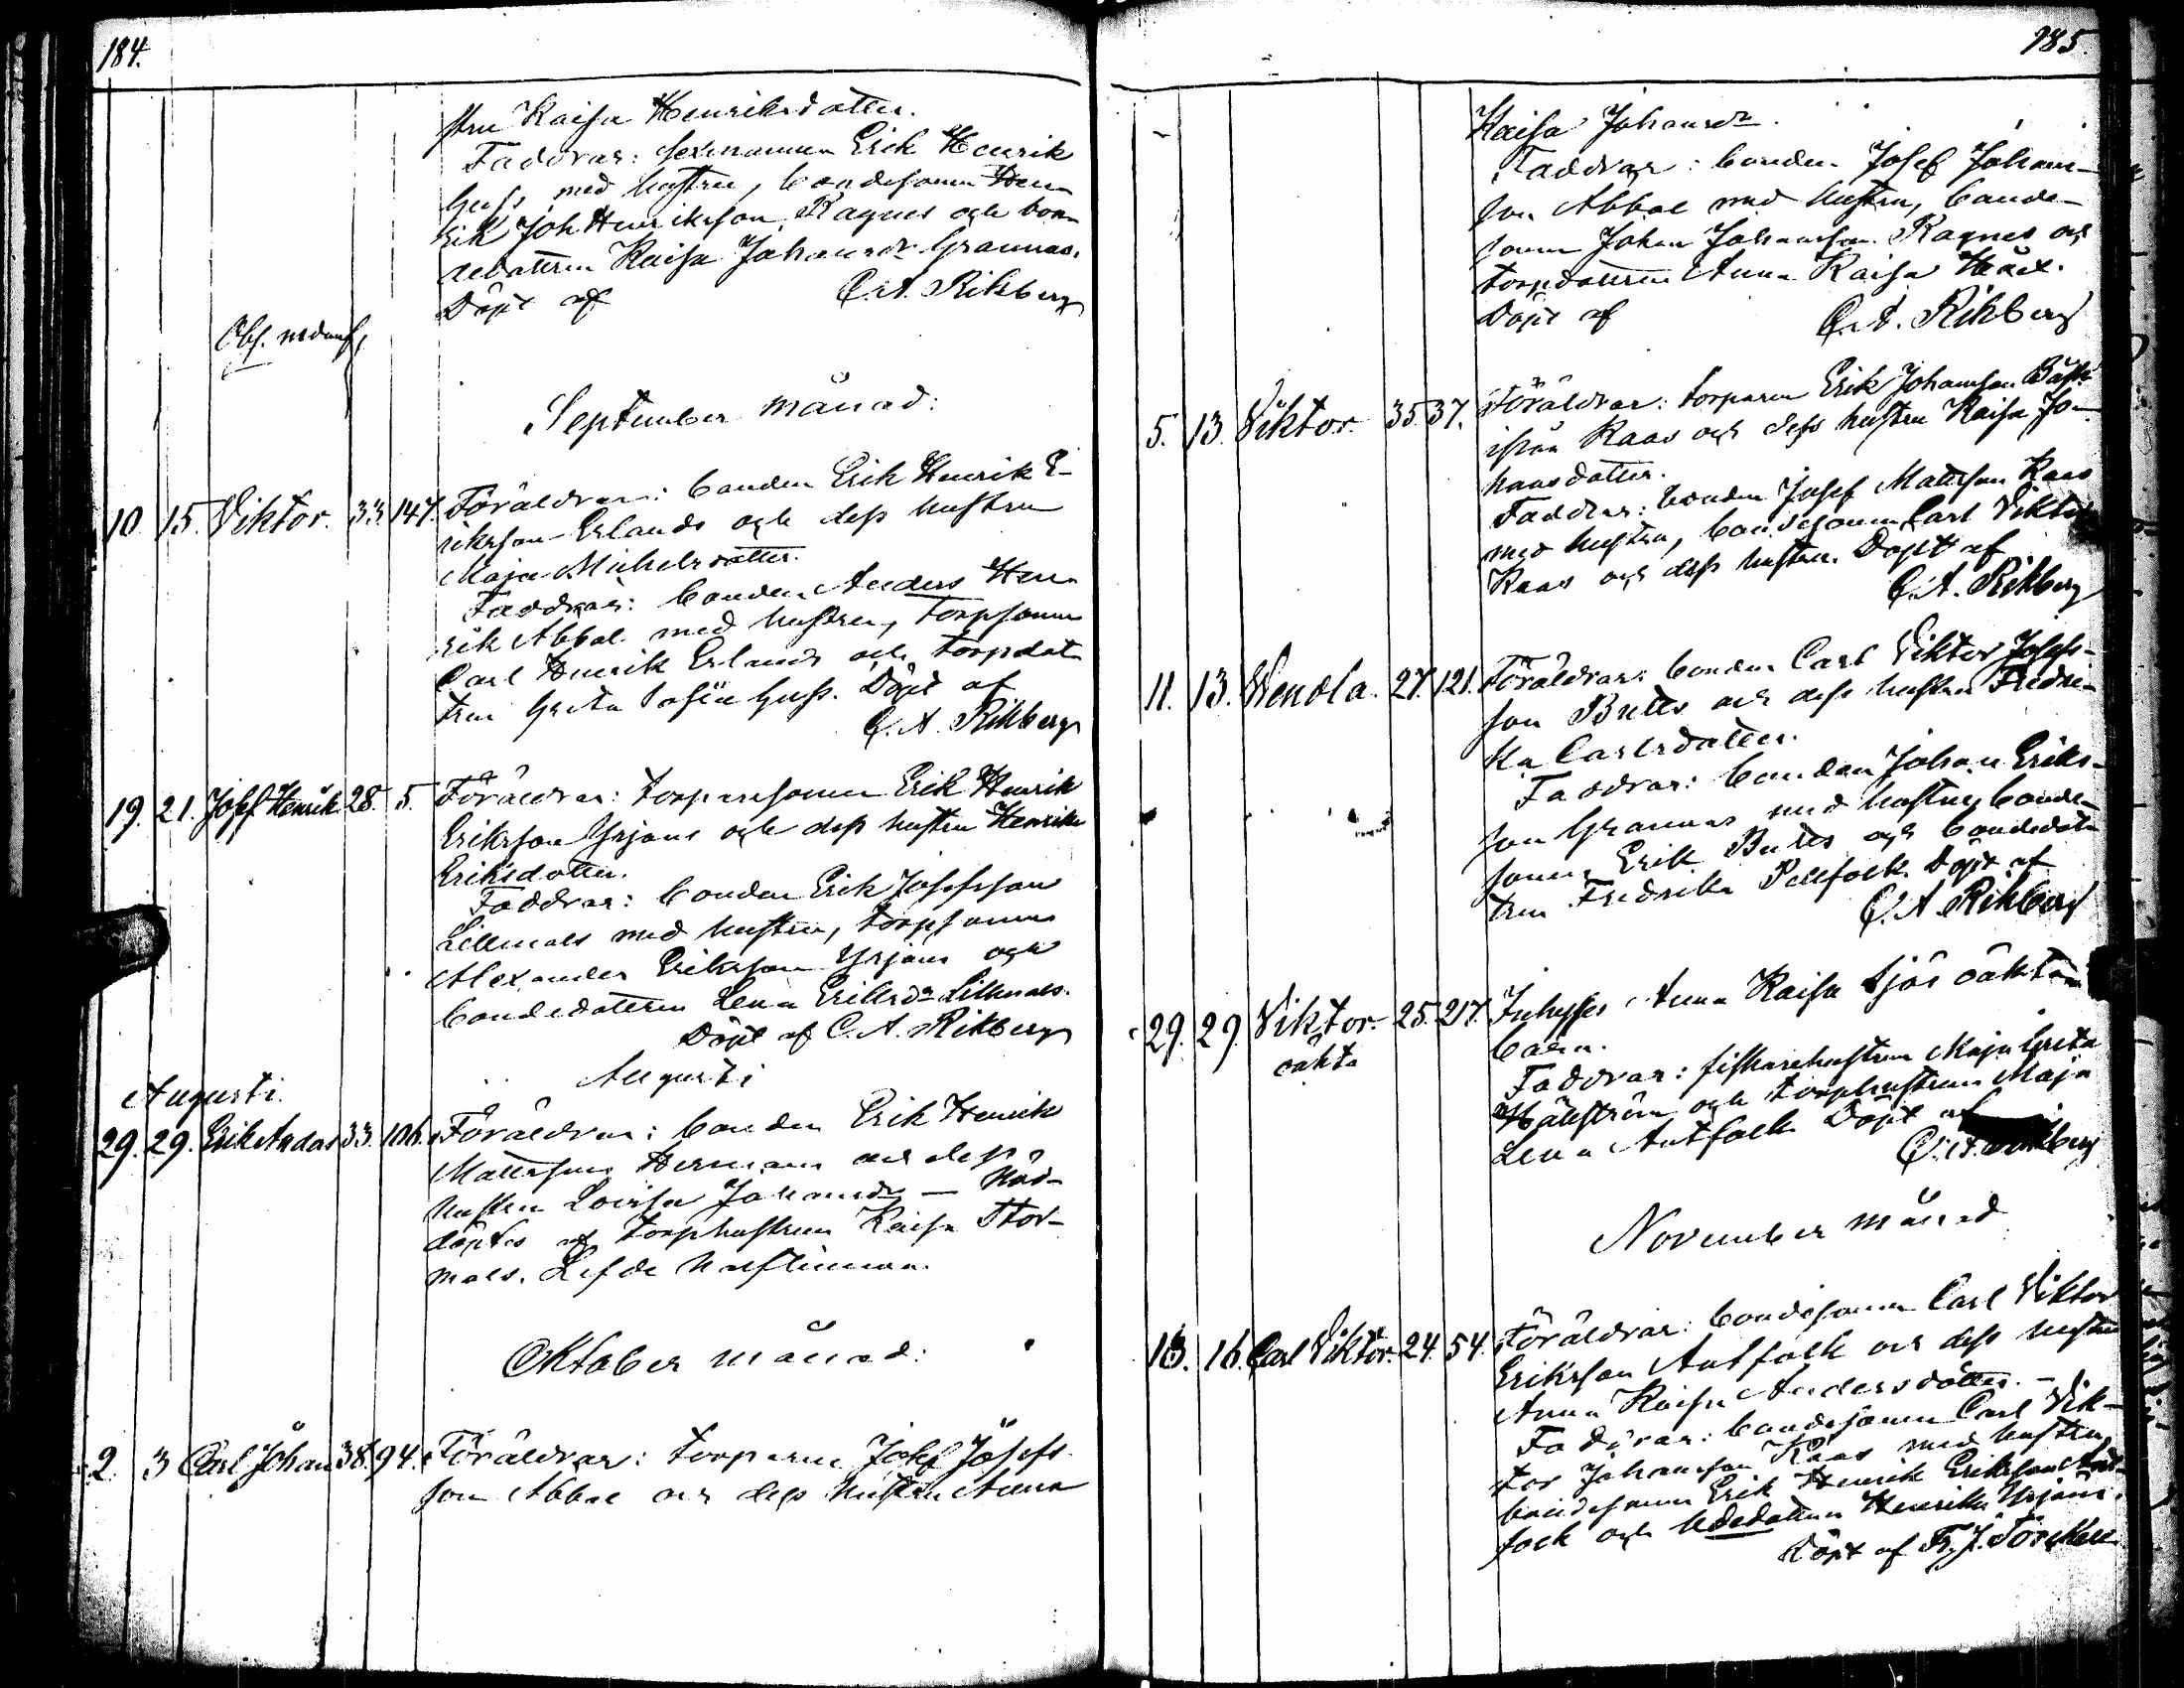 184.
stru Kaisa Henriksdotter.
Faddrar: sexmannen Erik Henrik
Guss med hustru, bondesonen Hen-
rik Joh Henrikson Ragnes och bon-
dedottren Kaisa Johansdr Grannas.
Döpt af C. A. Rikberg
Obs. nedanf.
September månad:
10. 15. Viktor. 33. 147. Föräldrar: bonden Erik Henrik E-
rikson Erlands och dess hustru
Maja Michelsdotter.
Faddrar: bonden Anders Hen-
rik Abbal med hustru, torpsonen
Carl Henrik Erlands och torpdot-
tren Greta Sofia Guss. Döpt af
C. A. Rikberg
19. 21. Josef Henrik 28. 5. Föräldrar: torparesonen Erik Henrik
Erikson Yrjans och dess hustru Henrika
Eriksdotter.
Faddrar: bonden Erik Josefsson
Lillmals med hustru, torpsonen
Alexander Erikson Yrjans och
bondedottren Lena Eriksdr Lillmals.
Döpt af C. A. Rikberg
Augusti
Augusti.
29. 29. Erik Andas 33. 106. Föräldrar: bonden Erik Henrik
Mattsson Hermans och dess
hustru Lovisa Johansdr — Nöd-
döptes af torphustrun Kaisa Stor-
mals. Lefde half timma.
Oktober månad:
2. 3 Carl Johan 38. 94. Föräldrar: torparen Josef Josefs-
son Abbal och dess hustru Anna
185.
Kaisa Johansdr.
Faddrar: bonden Josef Johans-
son Abbal med hustru, bonde-
sonen Johan Johansson Ragnes och
torpdottren Anna Kaisa
Döpt af C. A. Rikberg
5. 13. Viktor. 35. 37. Föräldrar: torparen Erik Johansson
ifrån Kaas och dess hustru Kaisa Jo-
hansdotter.
Faddrar: bonden Josef Mattsson Kaas
med hustru, bondesonen Carl Viktor
Kaas och dess hustru. Döpt af
C. A. Rikberg
11. 13. Wendla. 27. 121. Föräldrar: bonden Carl Viktor Josefs-
son Butts och dess hustru Fredri-
ka Carlsdotter.
Faddrar: bonden Johan Eriks-
son Grannas med hustru, bonde-
sonen Erik Butts och bondedot-
tren Fredrika Pellfolk. Döpt af
C. A. Rikberg
29. 29. Viktor. 25. 217. Inhyses Anna Kaisa Sjös oäkta
oäkta
barn.
Faddrar: fiskarehustrun Maja Greta
Hällström och torphustrun Maja
Lena Antfolk Döpt af
C. A. Rikberg
November månad
13. 16. Carl Viktor. 24. 54. Föräldrar: bondesonen Carl Viktor
Erikson Antfolk och dess hustru
Anna Kaisa Andersdotter. —
Faddrar: bondesonen Carl Vik-
tor Johansson Kaas med hustru,
bondesonen Erik Henrik Erikson Ant-
folk och bdedottren Henrika Yrjans.
Döpt af Fr. J.